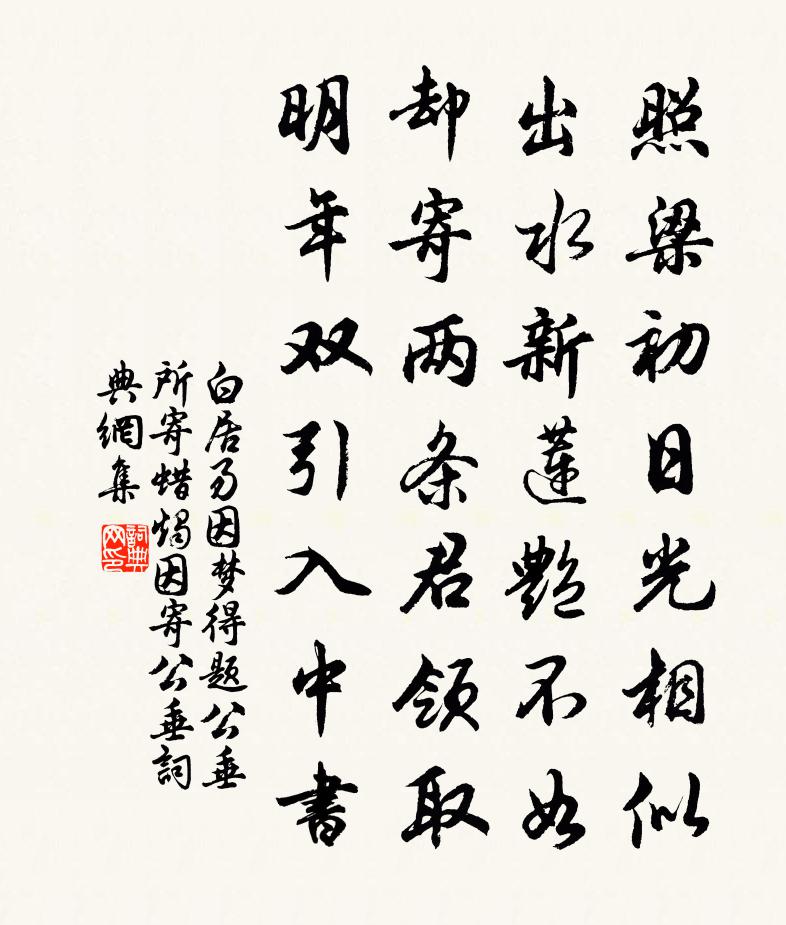 照梁初日光相似
出水新莲艷不如
却寄两条君领取
明年双引入中書
白居易因梦得题公垂
所寄蜡燭因寄公垂詞
典網集
詞典网印